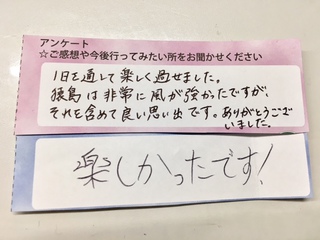 アンケート
☆ご感想や今後行ってみたい所をお聞かせください
1日を通して楽しく過せました。
猿島は非常に風が強かったですが、
それを含めて良い思い出です。ありがとうござ
いました。
楽しかったです!